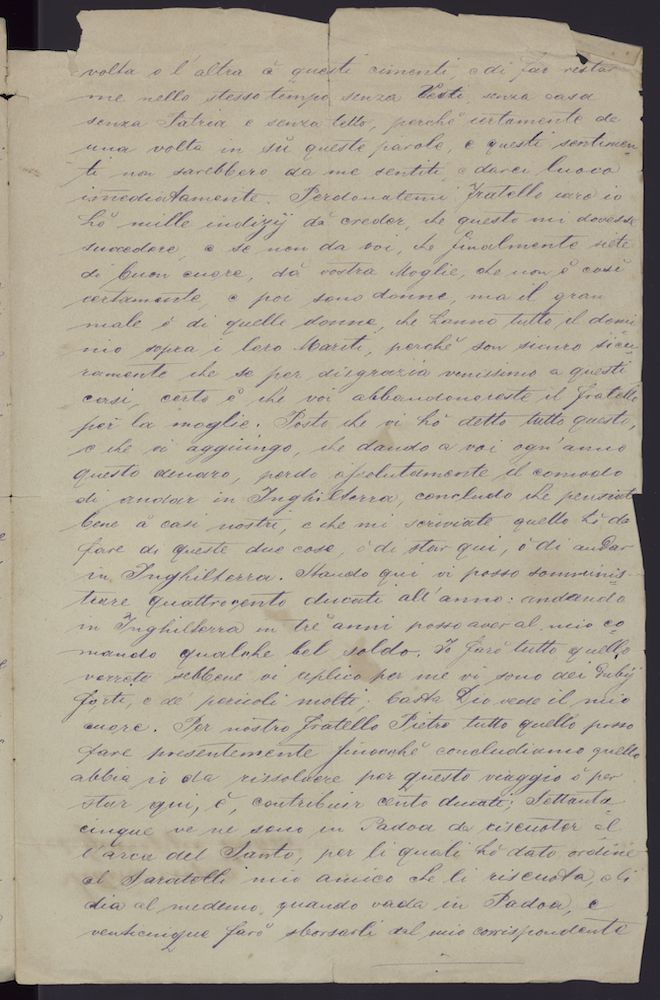 volta o l'altra à questi cimenti, e di far restar
me nello stesso tempo senza Vesti, senza casa
senza Patria e senza tetto, perchè certamente da
una volta in sù queste parole, e questi sentimen
ti non sarebbero da me sentiti, e darei luoco
immediatamente. Perdonatemi Fratello caro io
hò mille indizij da creder, che questo mi dovesse
succedere, e se non da voi, che finalmente siete
di buon cuore, dà vostra Moglie, che non è così
certamente, e poi sono donne, ma il gran
male è di quelle donne, che hanno tutto il domi
nio sopra i loro Mariti, perchè son sicuro sicu
ramente che se per disgrazia venissimo a questi
casi, certo è che voi abbandonareste il fratello
per la moglie. Posto che vi hò detto tutto questo,
e che vi aggiungo, che dando a voi ogn'anno
questo denaro, perdo assolutamente il comodo
di andar in Inghilterra, concludo che pensiate
bene à casi nostri, e che mi scriviate quello hò da
fare di queste due cose ò di star qui, ò di andar
in Inghilterra. Stando qui vi posso somminis-
trare quattrocento ducati all'anno: andando
in Inghilterra in trè anni posso aver al mio co
mando qualche bel soldo. Io farò tutto quello
vorrete sebbene vi replico per me vi sono dei Dubij
forti, e de' pericoli molti, basta Dio vede il mio
cuore. Per nostro fratello Pietro tutto quello posso
fare presentemente finocchè concludiamo quello
abbia io da rissolvere per questo viaggio ò per
star qui, è, contribuir cento ducati; Settanta
cinque ve ne sono in Padoa da riscuoter al
l'arca del Santo, per li quali hò dato ordine
al Saratelli mio amico che li riscuota, e li
dia al medemo, quando vada in Padoa, e
venticinque farò sborsarli dal mio corrispondente